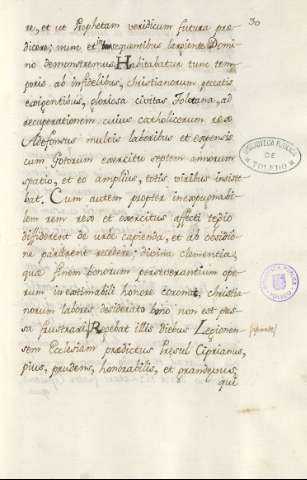 30
re, et ut Prophetam veridicum futura præ-
dicere; nunc et in sequentibus largiente Domi-
no demonstremus. Habitabatur tunc tem-
poris ab infidelibus, christianorum peccatis
exigentibus, gloriosa civitas Toletana, ad
recuperationem cuius catholicorum rex
Adefonsus multis laboribus et expensis
cum Gotorum exercitu septem annorum
spatio, et eo amplius, totis viribus insiste-
bat. Cum autem propter inexpugnabi-
lem rem rex et exercitus affecti tedio
diffiderent de urbe capienda, et ab obsidio-
ne pararent recedere; divina clementia,
quæ finem bonorum perseverantium ope-
rum inestimabili honore coronat, christia-
norum labores desiderato bono non est pas-
sa frustrari. Regebat illis diebus Legionen-
sem Ecclesiam predictus Presul Ciprianus,
pius, prudens, honorabilis, et grandævus,
qui
BIBLIOTECA PUBLICA
DE
TOLEDO